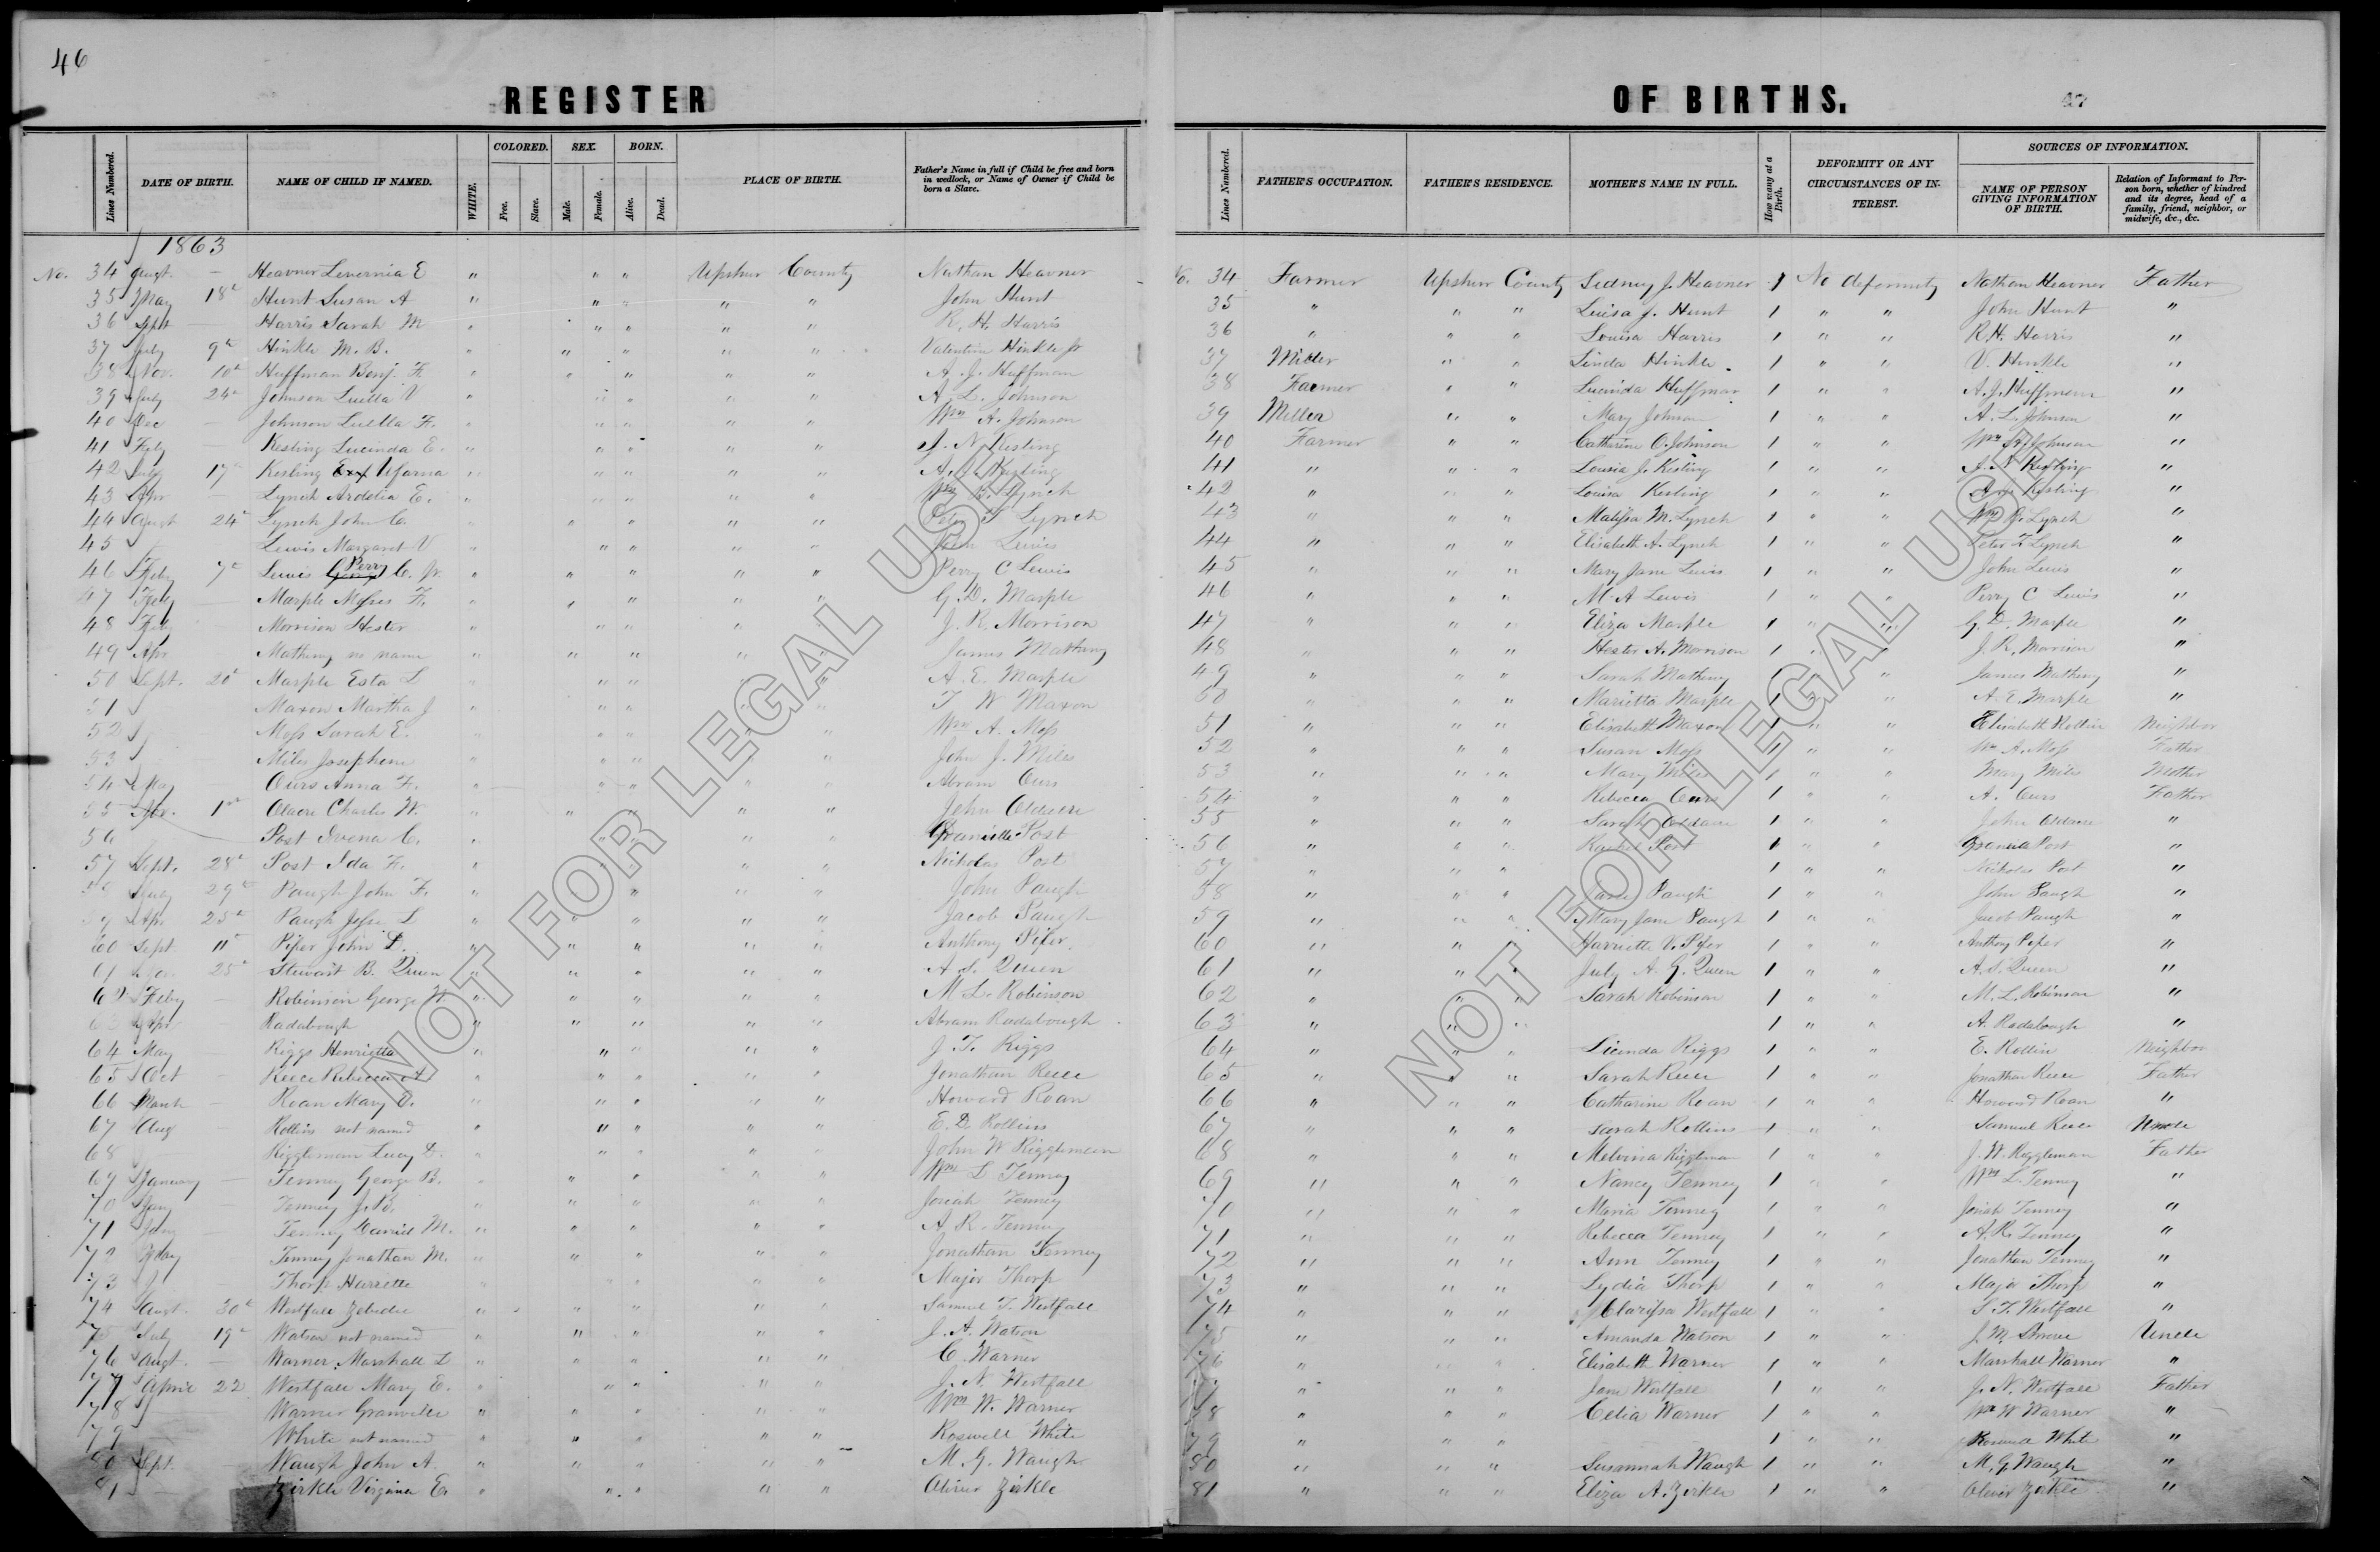 46
REGISTER OF BIRTHS. 47
Lines Numbered. DATE OF BIRTH. NAME OF CHILD IF NAMED. WHITE. COLORED. Free. Slave. SEX. Male. Female. BORN. Alive. Dead. PLACE OF BIRTH. Father's Name in full if Child be free and born in wedlock, or Name of Owner if Child be born a Slave.
Lines Numbered. FATHER'S OCCUPATION. FATHER'S RESIDENCE. MOTHER'S NAME IN FULL. How many at a Birth. DEFORMITY OR ANY CIRCUMSTANCES OF INTEREST. SOURCES OF INFORMATION. NAME OF PERSON GIVING INFORMATION OF BIRTH. Relation of Informant to Person born, whether of kindred and its degree, head of a family, friend, neighbor, or midwife, &c., &c.
1863
No. 34 Augt. — Heavner Levernia E " " " Upshur County Nathan Heavner
35 May 18th Hunt Susan A " " " " " John Hunt
36 Sept — Harris Sarah M " " " " " R. H. Harris
37 July 9th Hinkle M. B. " " " " " Valentine Hinkle Jr
38 Nov. 10th Huffman Benj. F. " " " " " A. J. Huffman
39 July 24th Johnson Luella V " " " " " A. L. Johnson
40 Dec — Johnson Luella F. " " " " " Wm A. Johnson
41 Feby — Kesling Lucinda E. " " " " " J. N. Kesling
42 July 17th Kesling Ufama " " " " " A. Kesling
43 Apr — Lynch Ardelia E. " " " " " Wm Lynch
44 Augt 24th Lynch John C. " " " " " Lynch
45 Lewis Margaret V " " " " " John Lewis
46 Feby 7th Lewis Perry C. Jr. " " " " " Perry C Lewis
47 Feby — Marple Moses F. " " " " " G. D. Marple
48 Feb — Morrison Hester " " " " " J. R. Morrison
49 Apr Matheny no name " " " " " James Matheny
50 Sept. 20th Marple Esta L " " " " " A. E. Marple
51 Maxon Martha J " " " " " T W Maxon
52 Moss Sarah E. " " " " " Wm A. Moss
53 Miles Josephine " " " " " John J. Miles
54 May Ours Anna F. " " " " " Abram Ours
55 Apr. 1st Charles W. " " " " " John
56 Post C. " " " " " Granville Post
57 Sept. 28th Post Ida F. " " " " Nicholas Post
58 July 29th Paugh John F. " " " " John Paugh
59 Apr 25th Paugh Jesse L " " " " " Jacob Paugh
60 Sept 11th Pifer John D. " " " " " Anthony Pifer
61 25th Stewart B. Queen " " " " " A S. Queen
62 Feby — Robinson George W. " " " " " M L. Robinson
63 Apr Radabough " " " " " Abram Radabough
64 May Riggs Henrietta " " " " " J. T. Riggs
65 Oct — Reece Rebecca A " " " " " Jonathan Reece
66 March — Roan Mary " " " " " Howard Roan
67 Aug Rollins not named " " " " " E. D. Rollins
68 Riggleman Lucy D. " " " " " John W Riggleman
69 January — Tenney George B. " " " " " Wm L Tenney
70 Jany — Tenney J. B. " " " " " Josiah Tenney
71 Jany — Tenney Daniel M. " " " " " A R. Tenney
72 May Tenney Jonathan M. " " " " " Jonathan Tenney
73 Thorp Harrette " " " " " Major Thorp
74 Augt. 30th Westfall Zebedee " " " " " Samuel T. Westfall
75 July 19th Watson not named " " " " " J. A. Watson
76 Augt. — Warner Marshall L " " " " " C. Warner
77 April 22 Westfall Mary E. " " " " " J. N. Westfall
78 Warner Granville " " " " " Wm W. Warner
79 White not named " " " " " Roswell White
80 Sept. — Waugh John A. " " " " " M. G. Waugh
81 — Zirkle Virginia E. " " " " " Oliver Zirkle
No. 34 Farmer Upshur County Sidney J. Heavner 1 No deformity Nathan Heavner Father
35 " " " Luisa J. Hunt 1 " " John Hunt "
36 " " " Louisa Harris 1 " " R. H. Harris "
37 Miller " " Linda Hinkle 1 " " V. Hinkle "
38 Farmer " " Lucinda Huffman 1 " " A. J. Huffman "
39 Miller " " Mary Johnson 1 " " A. L. Johnson "
40 Farmer " " Catharine C. Johnson 1 " " Wm A. Johnson "
41 " " " Lousia J. Kesling 1 " " J. N Kesling "
42 " " " Louisa Kesling 1 " " Kesling "
43 " " " Malissa M. Lynch 1 " " Wm Lynch "
44 " " " Elisabeth A. Lynch 1 " " Peter Lynch "
45 " " " Mary Jane Lewis 1 " " John Lewis "
46 " " " M. A Lewis 1 " " Perry C Lewis "
47 " " " Eliza Marple 1 " " G. D. Marple "
48 " " " Hester A. Morrison 1 " " J. R. Morrison "
49 " " " Sarah Matheny 1 " James Matheny "
50 " " " Marietta Marple 1 " A. E. Marple "
51 " " " Elisabeth Maxon 1 " " Elisabeth Rollin Neighbor
52 " " " Susan Moss 1 " " Wm A. Moss Father
53 " " " Mary Miles 1 " " Mary Miles Mother
54 " " " Rebecca Ours 1 " " A. Ours Father
55 " " " Sarah 1 " " John "
56 " " " Rachel Post 1 " " Post "
57 " " " 1 " " Nicholas Post "
58 " " " Paugh 1 " " John Paugh "
59 " " " Mary Jane Paugh 1 " " Jacob Paugh "
60 " " " Harriette V. Pifer 1 " " Anthony Pifer "
61 " " " July A. G. Queen 1 " " A. S. Queen "
62 " " " Sarah Robinson 1 " " M. L. Robinson "
63 " " " 1 " " A. Radabough "
64 " " " Licinda Riggs 1 " " E. Rollin Neighbor
65 " " " Sarah Reece 1 " " Jonathan Reece Father
66 " " " Catharine Roan 1 " " Howard Roan "
67 " " " Sarah Rollins 1 " " Samuel Reece Uncle
68 " " " Melvina Riggleman 1 " " J. W. Riggleman Father
69 " " " Nancy Tenney 1 " " Wm L. Tenney "
70 " " " Maria Tenney 1 " " Josiah Tenney "
71 " " " Rebecca Tenney 1 " " A. R. Tenney "
72 " " " Ann Tenney 1 " " Jonathan Tenney "
73 " " " Lydia Thorp 1 " " Major Thorp "
74 " " " Clarissa Westfall 1 " " S T. Westfall "
75 " " " Amanda Watson 1 " " J. M. Uncle
76 " " " Elisabeth Warner 1 " " Marshall Warner "
77 " " " Jane Westfall 1 " " J. N. Westfall Father
78 " " " Celia Warner 1 " " Wm W Warner "
79 " " " 1 " " White "
80 " " " Susannah Waugh 1 " " M. G. Waugh "
81 " " " Eliza A. Zirkle 1 " " Oliver Zirkle "
NOT FOR LEGAL USE
NOT FOR LEGAL USE